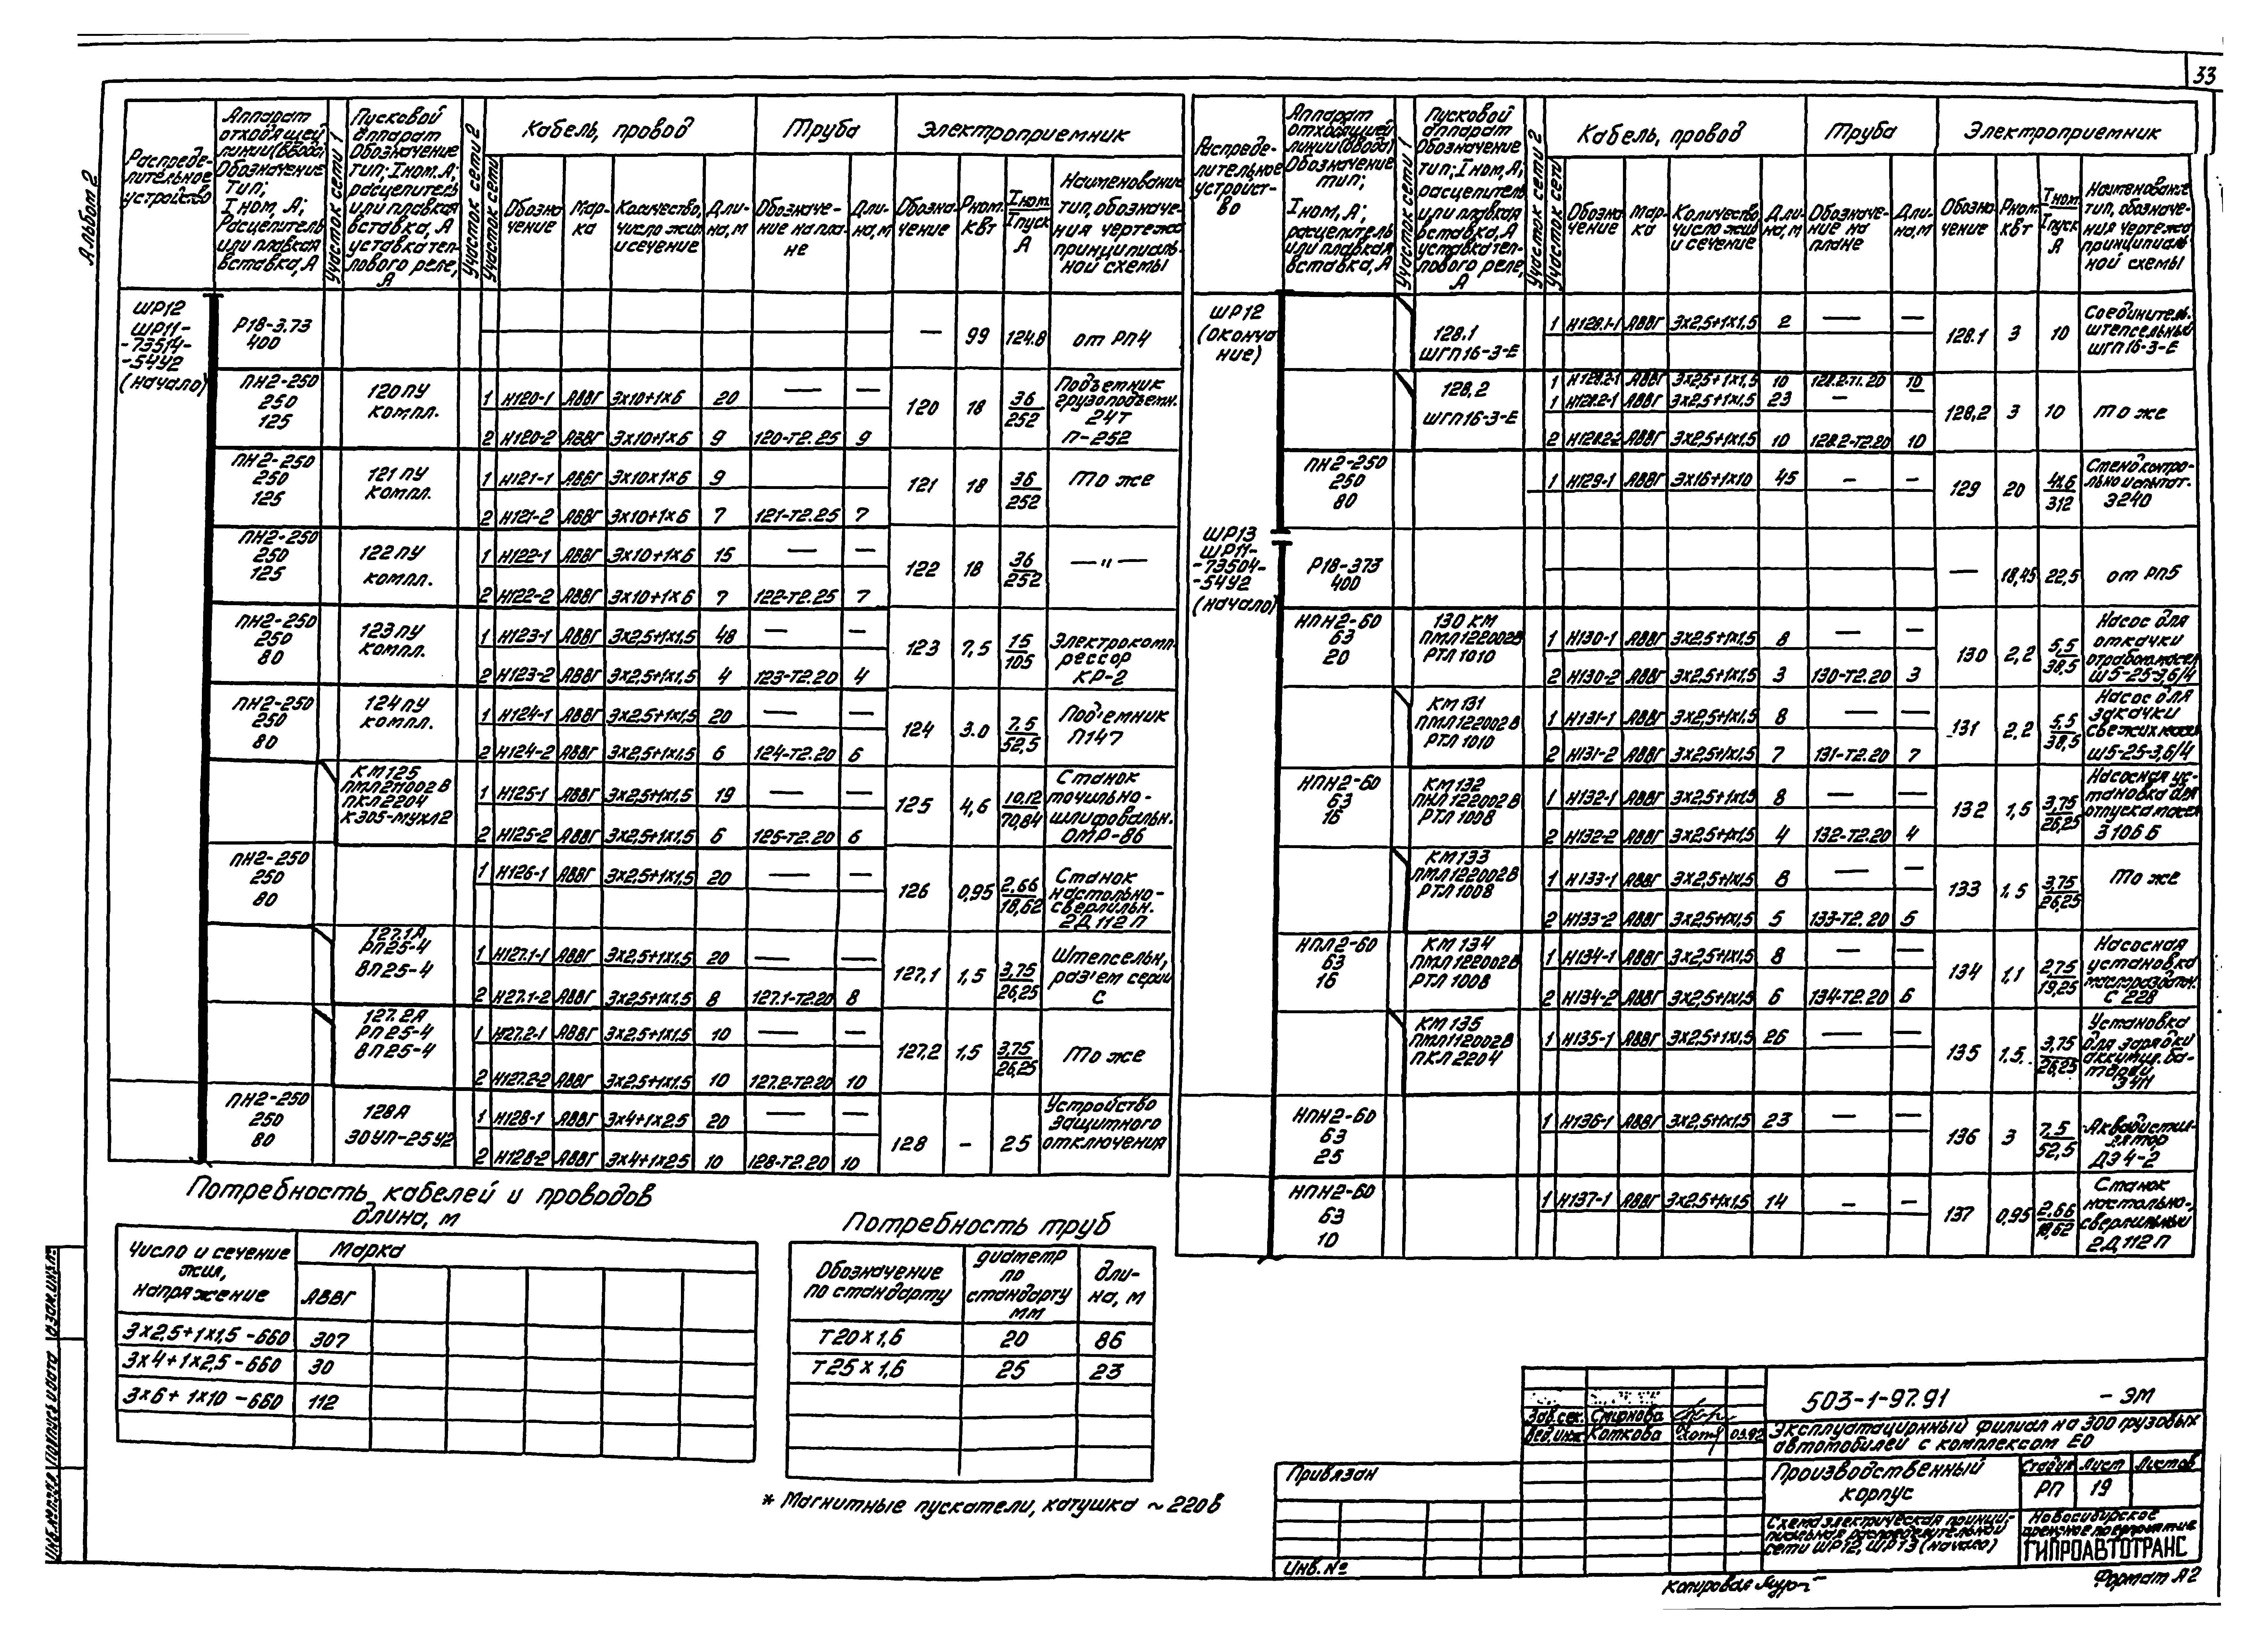 33
Альбом 2
Распреде-
лительное
устройство
Аппарат
отходящей
линии(ввода)
Обозначение
Тип;
I ном, А;
Расцепитель
или плавкая
вставка, А
Участок сети 1
Пусковой
аппарат
Обозначение
тип; I ном, А;
расцепитель
или плавкая
вставка, А
уставка теп-
лового реле,
А
Участок сети 2
Участок сети
Кабель, провод
Труба
Электроприемник
Обозна-
чение
Мар-
ка
Количество,
число жил
и сечение
Дли-
на, м
Обозначе-
ние на пла-
не
Дли-
на, м
Обозна-
чение
Рном.
кВт
Iном.
Iпуск
А
Наименование
тип, обозначе-
ния чертежа
принципиаль-
ной схемы
ШР12
ШР11-
-73514-
-54У2
(начало)
Р18-3.73
400
— 99 124.8 от РП4
ПН2-250
250
125
120ПУ
компл.
1 Н120-1 АВВГ 3х10+1х6 20 — —
2 Н120-2 АВВГ 3х10+1х6 9 120-Т2.25 9
120 18 36/252
Подъемник
грузоподъемн.
24т
П-252
ПН2-250
250
125
121ПУ
компл.
1 Н121-1 АВВГ 3х10х1х6 9
2 Н121-2 АВВГ 3х10+1х6 7 121-Т2.25 7
121 18 36/252 То же
ПН2-250
250
125
122ПУ
компл.
1 Н122-1 АВВГ 3х10+1х6 15 — —
2 Н122-2 АВВГ 3х10+1х6 7 122-Т2.25 7
122 18 36/252 — " —
ПН2-250
250
80
123ПУ
компл.
1 Н123-1 АВВГ 3х2,5+1х1,5 48 — —
2 Н123-2 АВВГ 3х2,5+1х1,5 4 123-Т2.20 4
123 7,5 15/105
Электрокомп-
рессор
КР-2
ПН2-250
250
80
124ПУ
компл.
1 Н124-1 АВВГ 3х2,5+1х1,5 20 — —
2 Н124-2 АВВГ 3х2,5+1х1,5 6 124-Т2.20 6
124 3.0 7.5/52,5
Подъемник
П147
КМ125
ПМЛ211002В
ПКЛ2204
КЭ05-МУХЛ2
1 Н125-1 АВВГ 3х2,5+1х1,5 19 — —
2 Н125-2 АВВГ 3х2,5+1х1,5 6 125-Т2.20 6
125 4,6 10,12/70,84
Станок
точильно-
шлифовальн.
ОТР-86
ПН2-250
250
80
1 Н126-1 АВВГ 3х2,5+1х1,5 20 — —
126 0,95 2,66/18,62
Станок
настольно-
сверлильн.
2Д112П
127.1А,
РП25-4
ВП25-4
1 Н127.1-1 АВВГ 3х2,5+1х1,5 20 — —
2 Н27.1-2 АВВГ 3х2,5+1х1,5 8 127.1-Т2.20 8
127,1 1,5 3,75/26,25
Штепсельн,
разъем серии
С
127.2А
РП25-4
ВП25-4
1 Н27.2-1 АВВГ 3х2,5+1х1,5 10 — —
2 Н127.2-2 АВВГ 3х2,5+1х1,5 10 127.2-Т2.20 10
127.2 1,5 3,75/26,25 То же
ПН2-250
250
80
128А
ЗОУП-25У2
1 Н128-1 АВВГ 3х4+1х2.5 20 — —
2 Н128-2 АВВГ 3х4+1х25 10 128-Т2.20 10
128 - 25
Устройство
защитного
отключения
Распреде-
лительное
устройст-
во
Аппарат
отходящей
линии(ввода)
Обозначение
тип;
I ном, А;
расцепитель
или плавкая
вставка, А
Участок сети 1
Пусковой
аппарат
Обозначение
тип; I ном, А;
расцепитель
или плавкая
вставка, А
уставка теп-
лового реле,
А
Участок сети 2
Участок сети
Кабель, провод
Труба
Электроприемник
Обозна-
чение
Мар-
ка
Количество
число жил
и сечение
Дли-
на, м
Обозначе-
ние на
плане
Дли-
на, м
Обозна-
чение
Рном.
кВт
Iном.
Iпуск
А
Наименование
тип, обозначе-
ния чертежа
принципиаль-
ной схемы
ШР12
(оконча
ние)
128.1
ШГП16-3-Е
1 Н128.1-1 АВВГ 3х2,5+1х1,5 2 — —
128.1 3 10
Соединитель.
штепсельный
ШГП16-3-Е
128,2
ШГП16-3-Е
1 Н128.2-1 АВВГ 3х2,5+1х1,5 10 128.2-Т1.20 10
1 Н128.2-1 АВВГ 3х2,5+1х1,5 23 — —
2 Н128.2-2 АВВГ 3х2,5+1х1,5 10 128.2-Т2.20 10
128,2 3 10 То же
ПН2-250
250
80
1 Н129-1 АВВГ 3х16+1х10 45 — —
129 20 4х6/312
Стенд контро-
льно испытат.
Э240
ШР13
ШР11-
-73504-
-54У2
(начало)
Р18-373
400
— 18,45 22,5 от РП5
НПН2-60
63
20
130 КМ
ПМЛ122002В
РТЛ1010
1 Н130-1 АВВГ 3х2,5+1х1,5 8 — —
2 Н130-2 АВВГ 3х2,5+1х1,5 3 130-Т2.20 3
130 2,2 5,5/38,5
Насос для
откачки
отработ.масел
Ш5-25-3,6/4
КМ131
ПМЛ122002В
РТЛ1010
1 Н131-1 АВВГ 3х2,5+1х1,5 8 — —
2 Н131-2 АВВГ 3х2,5+1х1,5 7 131-Т2.20 7
131 2,2 5,5/38,5
Насос для
закачки
свежих масел
Ш5-25-3,6/4
НПН2-60
63
16
КМ132
ПМЛ122002В
РТЛ1008
1 Н132-1 АВВГ 3х2,5+1х1,5 8 — —
2 Н132-2 АВВГ 3х2,5+1х1,5 4 132-Т2.20 4
132 1,5 3,75/26,25
Насосная ус-
тановка для
отпуска масел
3106Б
КМ133
ПМЛ122002В
РТЛ1008
1 Н133-1 АВВГ 3х2,5+1х1,5 8 — —
2 Н133-2 АВВГ 3х2,5+1х1,5 5 133-Т2.20 5
133 1,5 3,75/26,25 То же
НПЛ2-60
63
16
КМ134
ПМЛ122002В
РТЛ1008
1 Н134-1 АВВГ 3х2,5+1х1,5 8 — —
2 Н134-2 АВВГ 3х2,5+1х1,5 6 134-Т2.20 6
134 1,1 2,75/19,25
Насосная
установка
маслораздаточ.
С 228
КМ135
ПМЛ112002В
ПКЛ2204
1 Н135-1 АВВГ 3х2,5+1х1,5 26 — —
135 1,5. 3,75/26,25
Установка
для зарядки
аккумул. ба-
тарей
Э411
НПН2-60
63
25
1 Н136-1 АВВГ 3х2,5+1х1,5 23 — —
136 3 7,5/52,5
Аквадистил-
лятор
ДЭ4-2
НПН2-60
63
10
1 Н137-1 АВВГ 3х2,5+1х1,5 14 — —
137 0,95 2,66/18,62
Станок
настольно-
сверлильный
2Д112П
Потребность кабелей и проводов
длина, м
Число и сечение
жил,
напряжение
Марка
АВВГ
3х2,5+1х1,5-660 307
3х4+1х2,5-660 30
3х6+1х10-660 112
Потребность труб
Обозначение
по стандарту
диаметр
по
стандарту
мм
дли-
на, м
Т20х1,6 20 86
Т25х1,6 25 23
* Магнитные пускатели, катушка ~220в
Привязан
Инв. №
Зав.сек. Смирнова
Вед.инж. Коткова 03.92
503-1-97.91 - ЭМ
Эксплуатационный филиал на 300 грузовых
автомобилей с комплексом ЕО
Производственный
корпус
Стадия Лист Листов
РП 19
Схема электрическая принци-
пиальная распределительной
сети ШР12, ШР13 (начало)
Новосибирское
арендное предприятие
ГИПРОАВТОТРАНС
Копировал
Формат А2
Инв.№подл. Подпись и дата Взам.инв.№